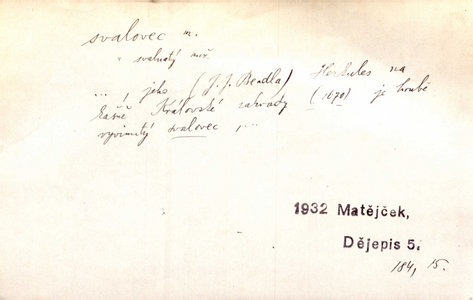 svalovec m.
= svalnatý muž
..., jeho (J. J. Bendla) Herkules na
kašně Královské zahrady (1670) je hrubě
vyvinutý svalovec, ...
1932 Matějček,
Dějepis 5.
184, 15.